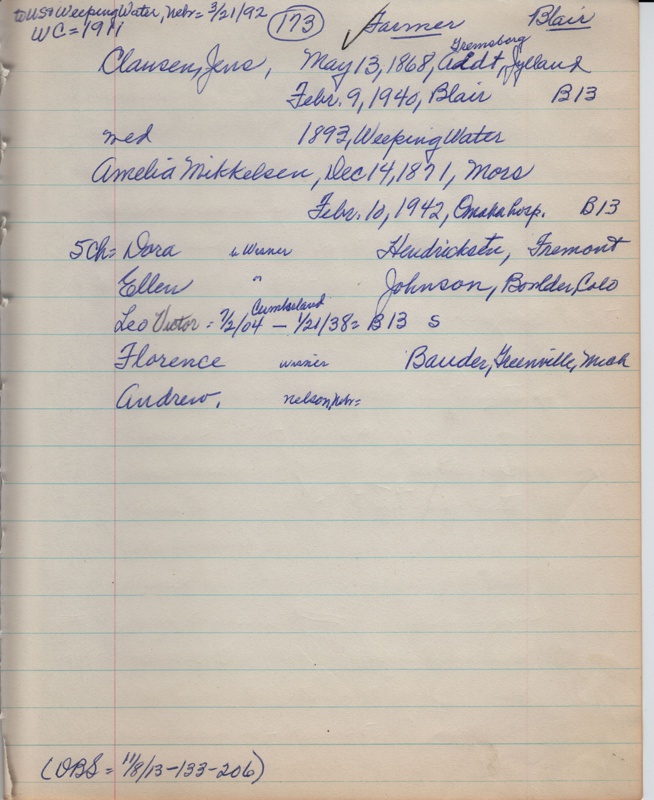 to US & Weeping Water, Nebr = 3/21/92 (173) Farmer Blair
WC = 1911
Gremsborg
Clausen, Jens, May 13, 1868, Addt, Jylland
Febr. 9, 1940, Blair B13
med 1893, Weeping Water
Amelia Mikkelsen, Dec 14, 1871, Mors
Febr. 10, 1942, Omaha hosp. B13
5 Ch = Dora in Wisner Hendricksen, Fremont
Ellen " Johnson, Boulder, Colo
Cumberland
Leo Victor = 7/2/04 – 1/21/38 = B13 S
Florence Wisner Bauder, Greenville, Mich
Andrew, Nelson, Nebr =
(OBS = 11/8/13-133-206)